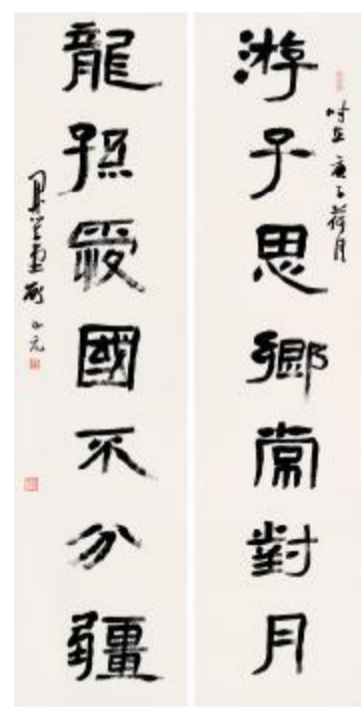 游子思鄉常對月
时在庚子荷月
龍孫愛國不分疆